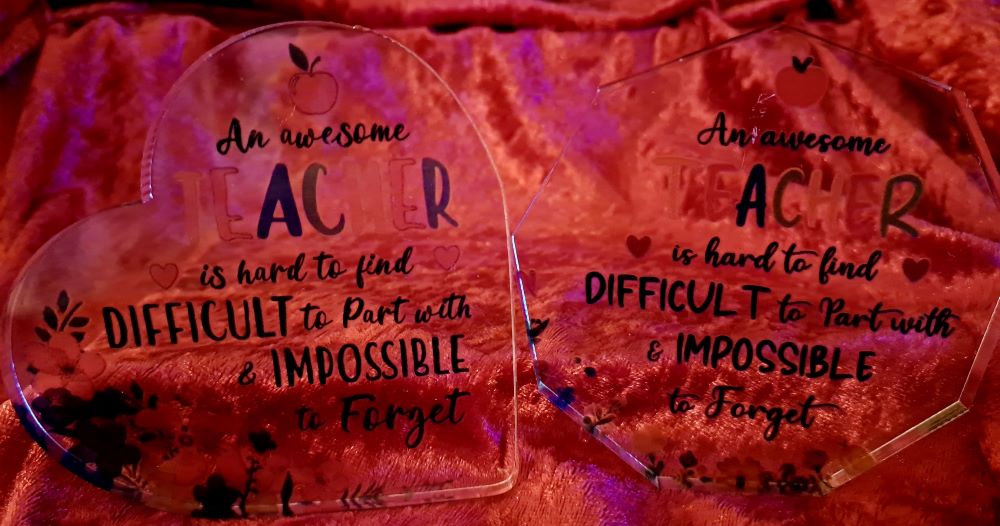 An awesome
TEACHER
is hard to find
DIFFICULT to Part with
& IMPOSSIBLE
to Forget
An awesome
TEACHER
is hard to find
DIFFICULT to Part with
& IMPOSSIBLE
to Forget